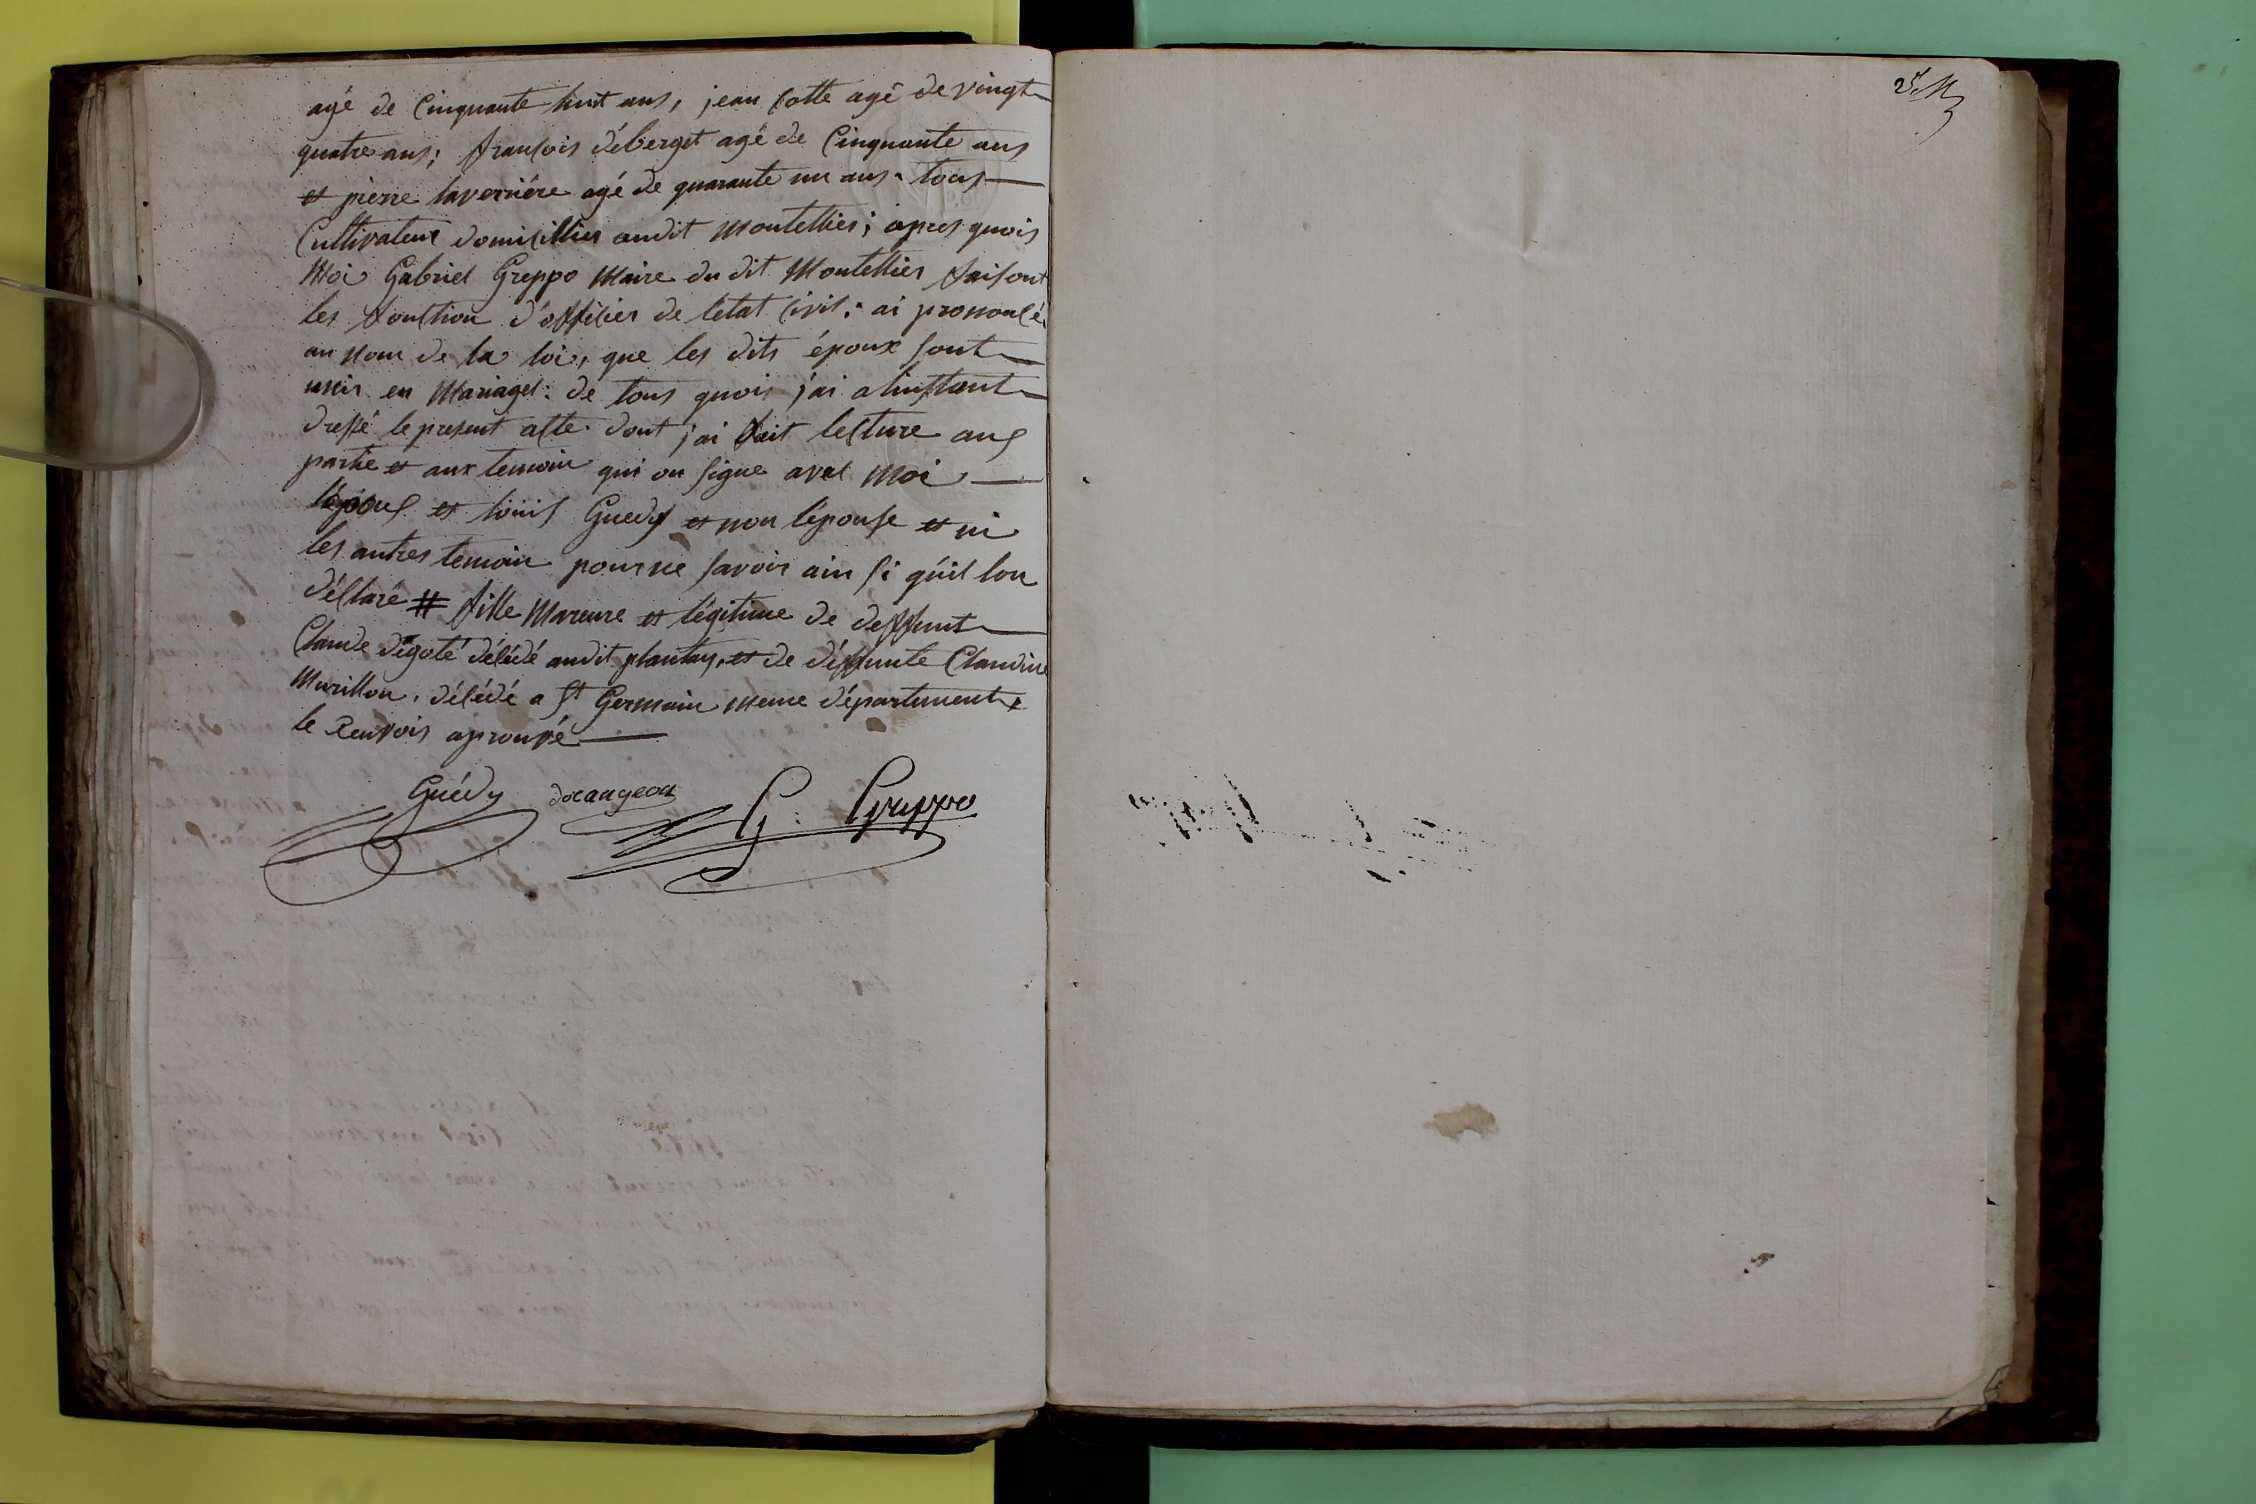 agé de Cinquante huit ans, jean Cotte agé de vingt
quatre ans; francois déberget agé de Cinquante ans
et pierre laverriére agé de quarante un ans. tous
Cultivateur domicillier audit Montellier; apres quois
Moi Gabriel Greppo Maire du dit Montellier faisant
les fonction d'officier de letat Civil; ai prononcé
au nom de la loi, que les dits époux sont
unis en Mariages: de tous quois j'ai a linstant
dressé le present acte dont j'ai fait lecture aux
partie et aux temoin qui on signe avec Moi
lépoux et louis Guedy et non lépouse et ni
les autres temoin pour ne savoir ain si quil lon
déclaré # fille Mareure et légitime de deffunt
Claude dégoté décédé audit plantay, et de déffunte Claudine
Murillon, décédé a St Germain meme département
le Renvois aprouvé
Guédy G: Greppo